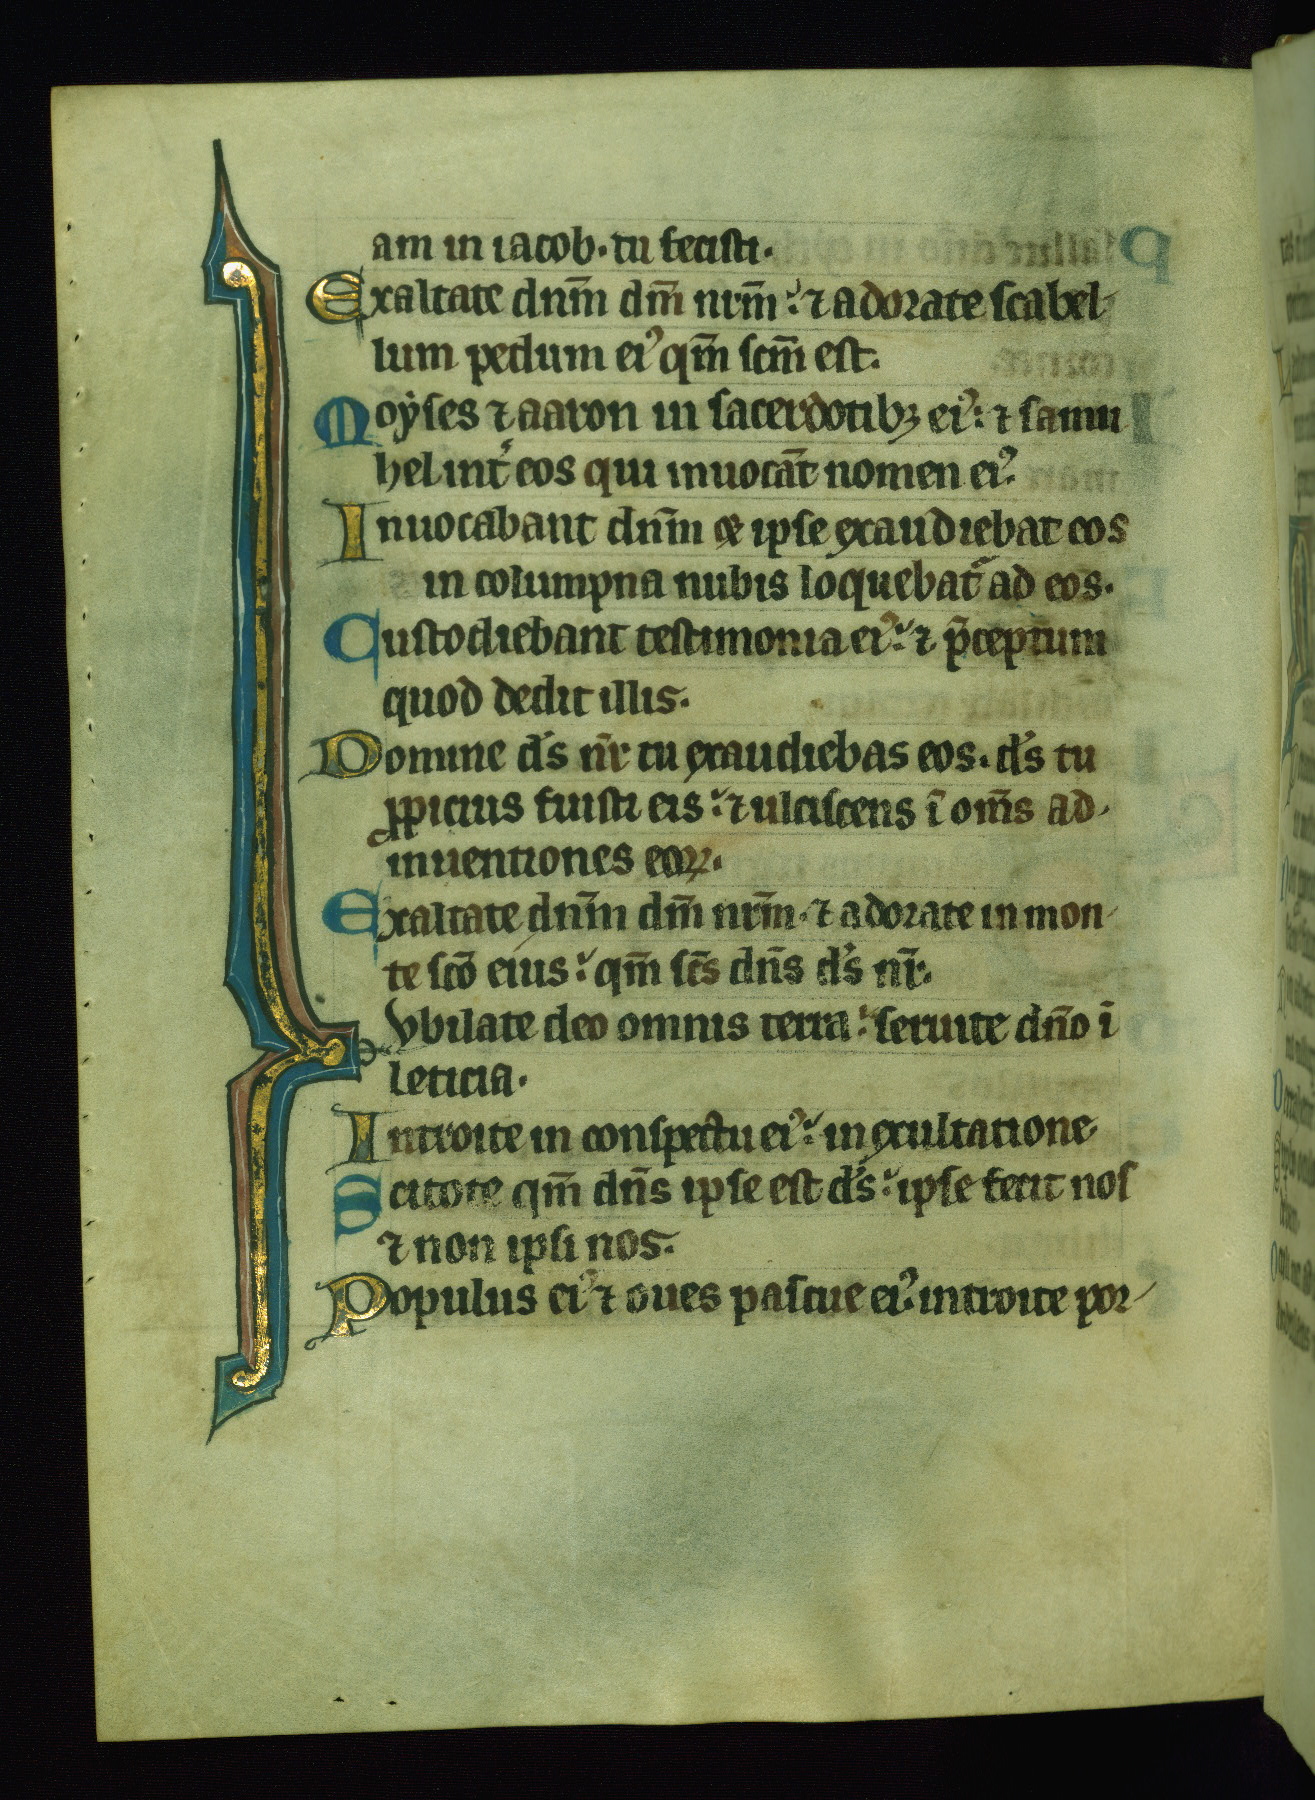 am in iacob. tu fecisti.
Exaltate dnm̄ dm̄ nrm̄: ⁊ adorate scabel-
lum pedum eiꝰ qm̄ scm̄ est.
Moẏses ⁊ aaron in sacerdotibꝫ eiꝰ: ⁊ samu
hel int̉ eos qui inuocāt nomen eiꝰ.
Inuocabant dnm̄ ⁊ ipse exaudiebat eos
in columpna nubis loquebat̉ ad eos.
Custodiebant testimonia eiꝰ: ⁊ p̄ceptum
quod dedit illis.
Domine ds̄ nr̄ tu exaudiebas eos. ds̄ tu
ꝓpicius fuisti eis: ⁊ ulciscens ī om̄s ad-
inuentiones eoꝝ.
Exaltate dnm̄ dm̄ nrm̄. ⁊ adorate in mon-
te scō eius: qm̄ sc̄s dn̄s ds̄ nr̄.
Iubilate deo omnis terra: seruite dn̄o ī
leticia.
Introite in conspectu eiꝰ: in exultatione
Scitote qm̄ dn̄s ipse est ds̄: ipse fecit nos
⁊ non ipsi nos.
Populus eiꝰ ⁊ oues pascue eiꝰ. introite por-